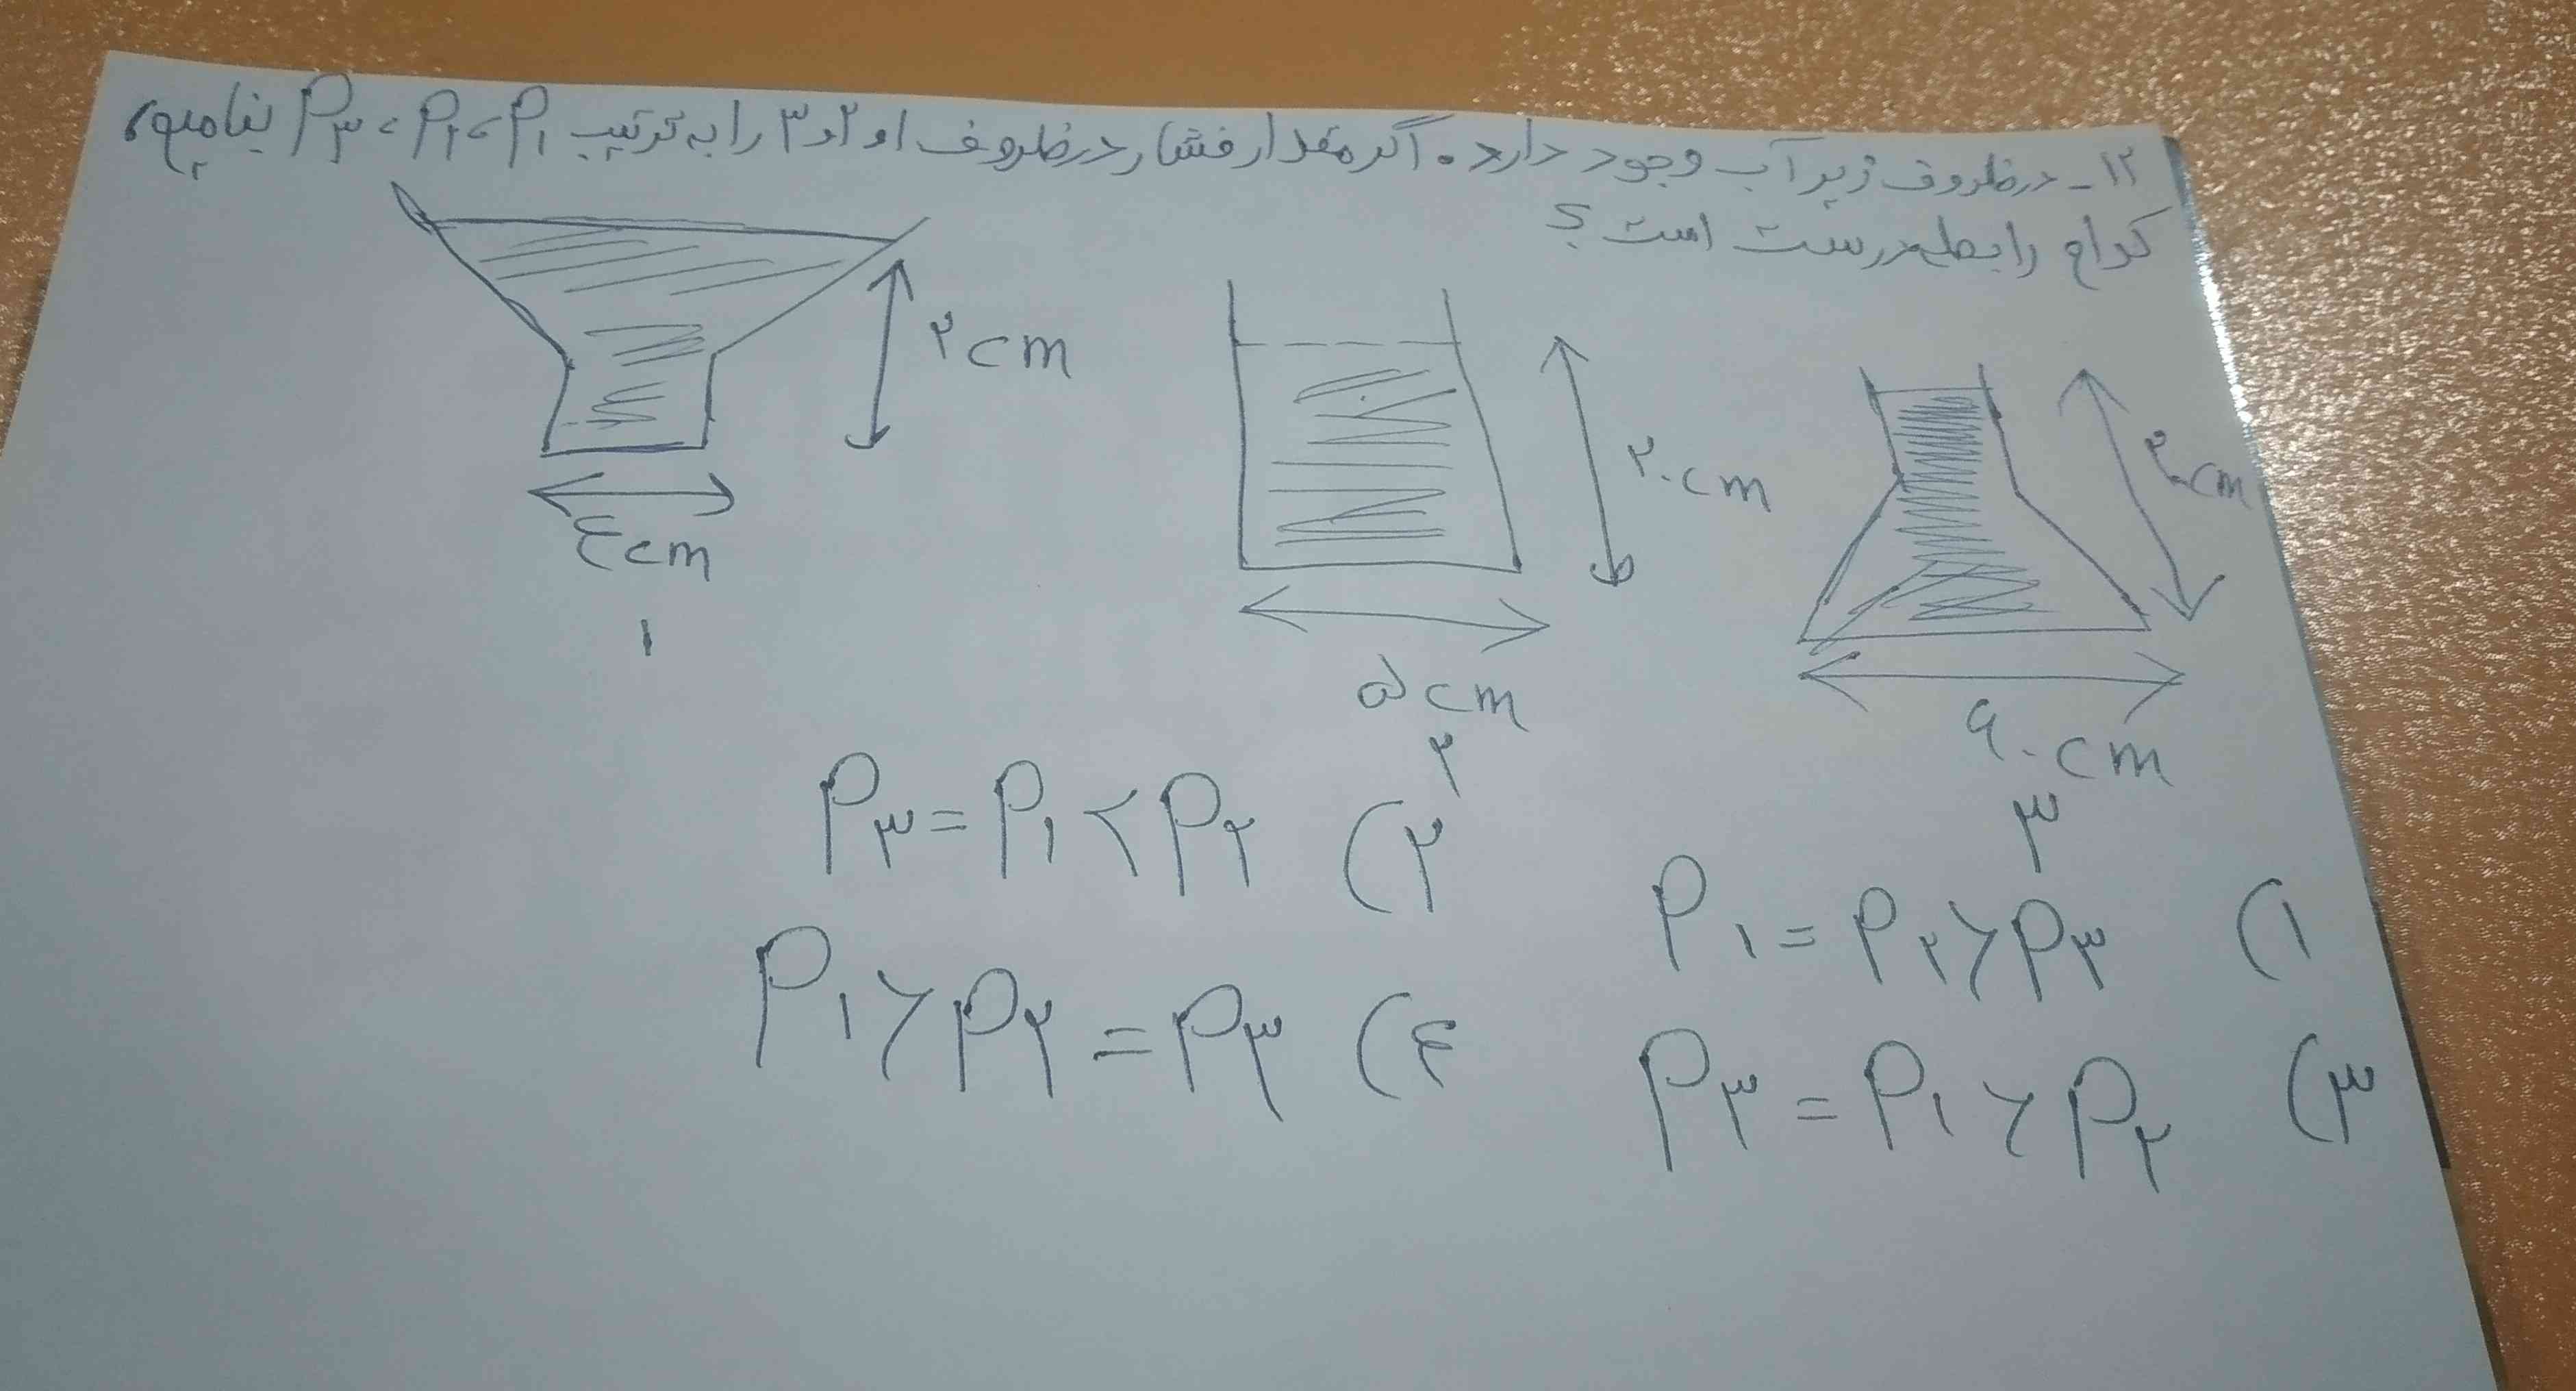 ۱۲- در ظروف زیر آب وجود دارد. اگر مقدار فشار در ظروف ۱ و ۲ و ۳ را به ترتیب P۱، P۲، P۳ بنامیم،
کدام رابطه درست است؟
۲cm
۲۰cm
۲۰cm
۴cm
۵cm
۶۰cm
۱
۲
۳
۱) P۱ = P۲ > P۳
۲) P۳ = P۱ < P۲
۳) P۳ = P۱ > P۲
۴) P۱ > P۲ = P۳